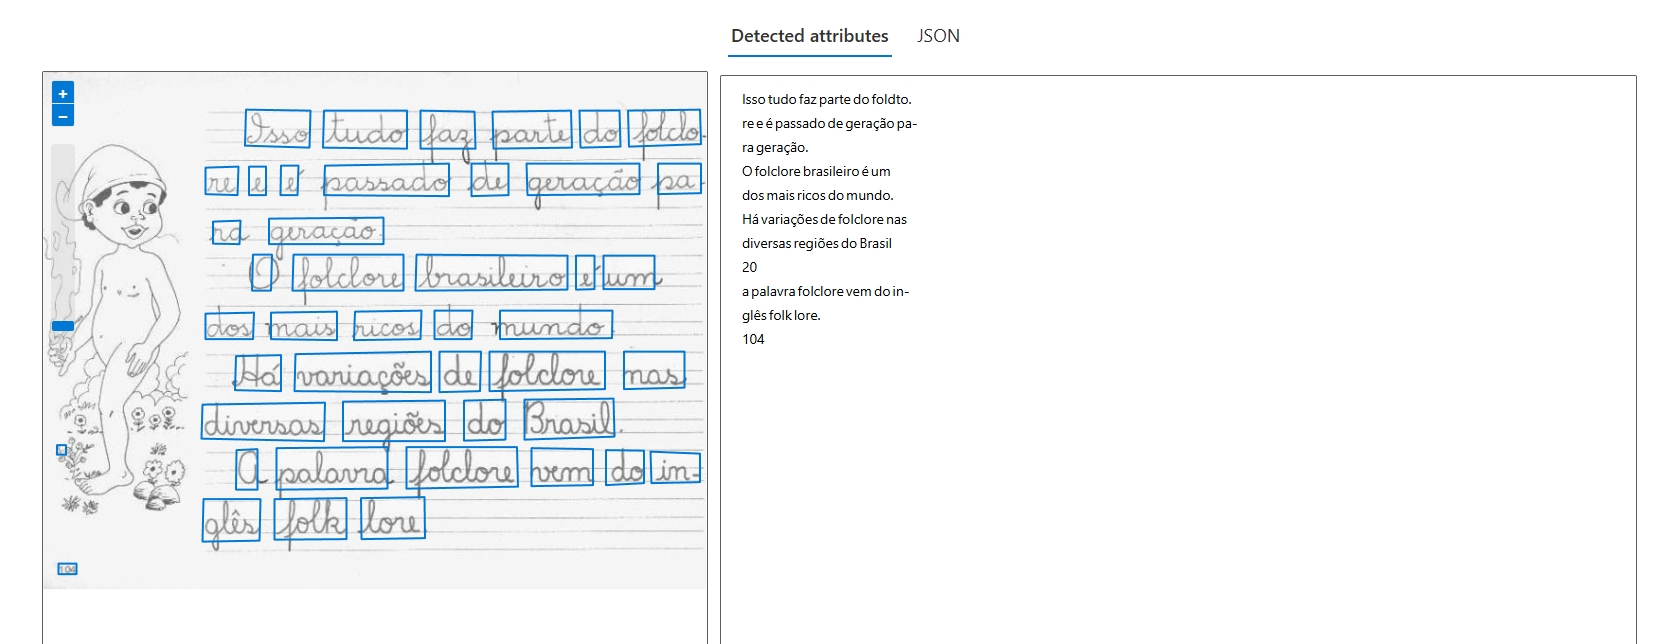 Detected attributes JSON
+
−
Isso tudo faz parte do folclo-
re e é passado de geração pa-
ra geração.
O folclore brasileiro é um
dos mais ricos do mundo.
Há variações de folclore nas
diversas regiões do Brasil.
A palavra folclore vem do in-
glês folk lore.
104
Isso tudo faz parte do foldto.
re e é passado de geração pa-
ra geração.
O folclore brasileiro é um
dos mais ricos do mundo.
Há variações de folclore nas
diversas regiões do Brasil
20
a palavra folclore vem do in-
glês folk lore.
104